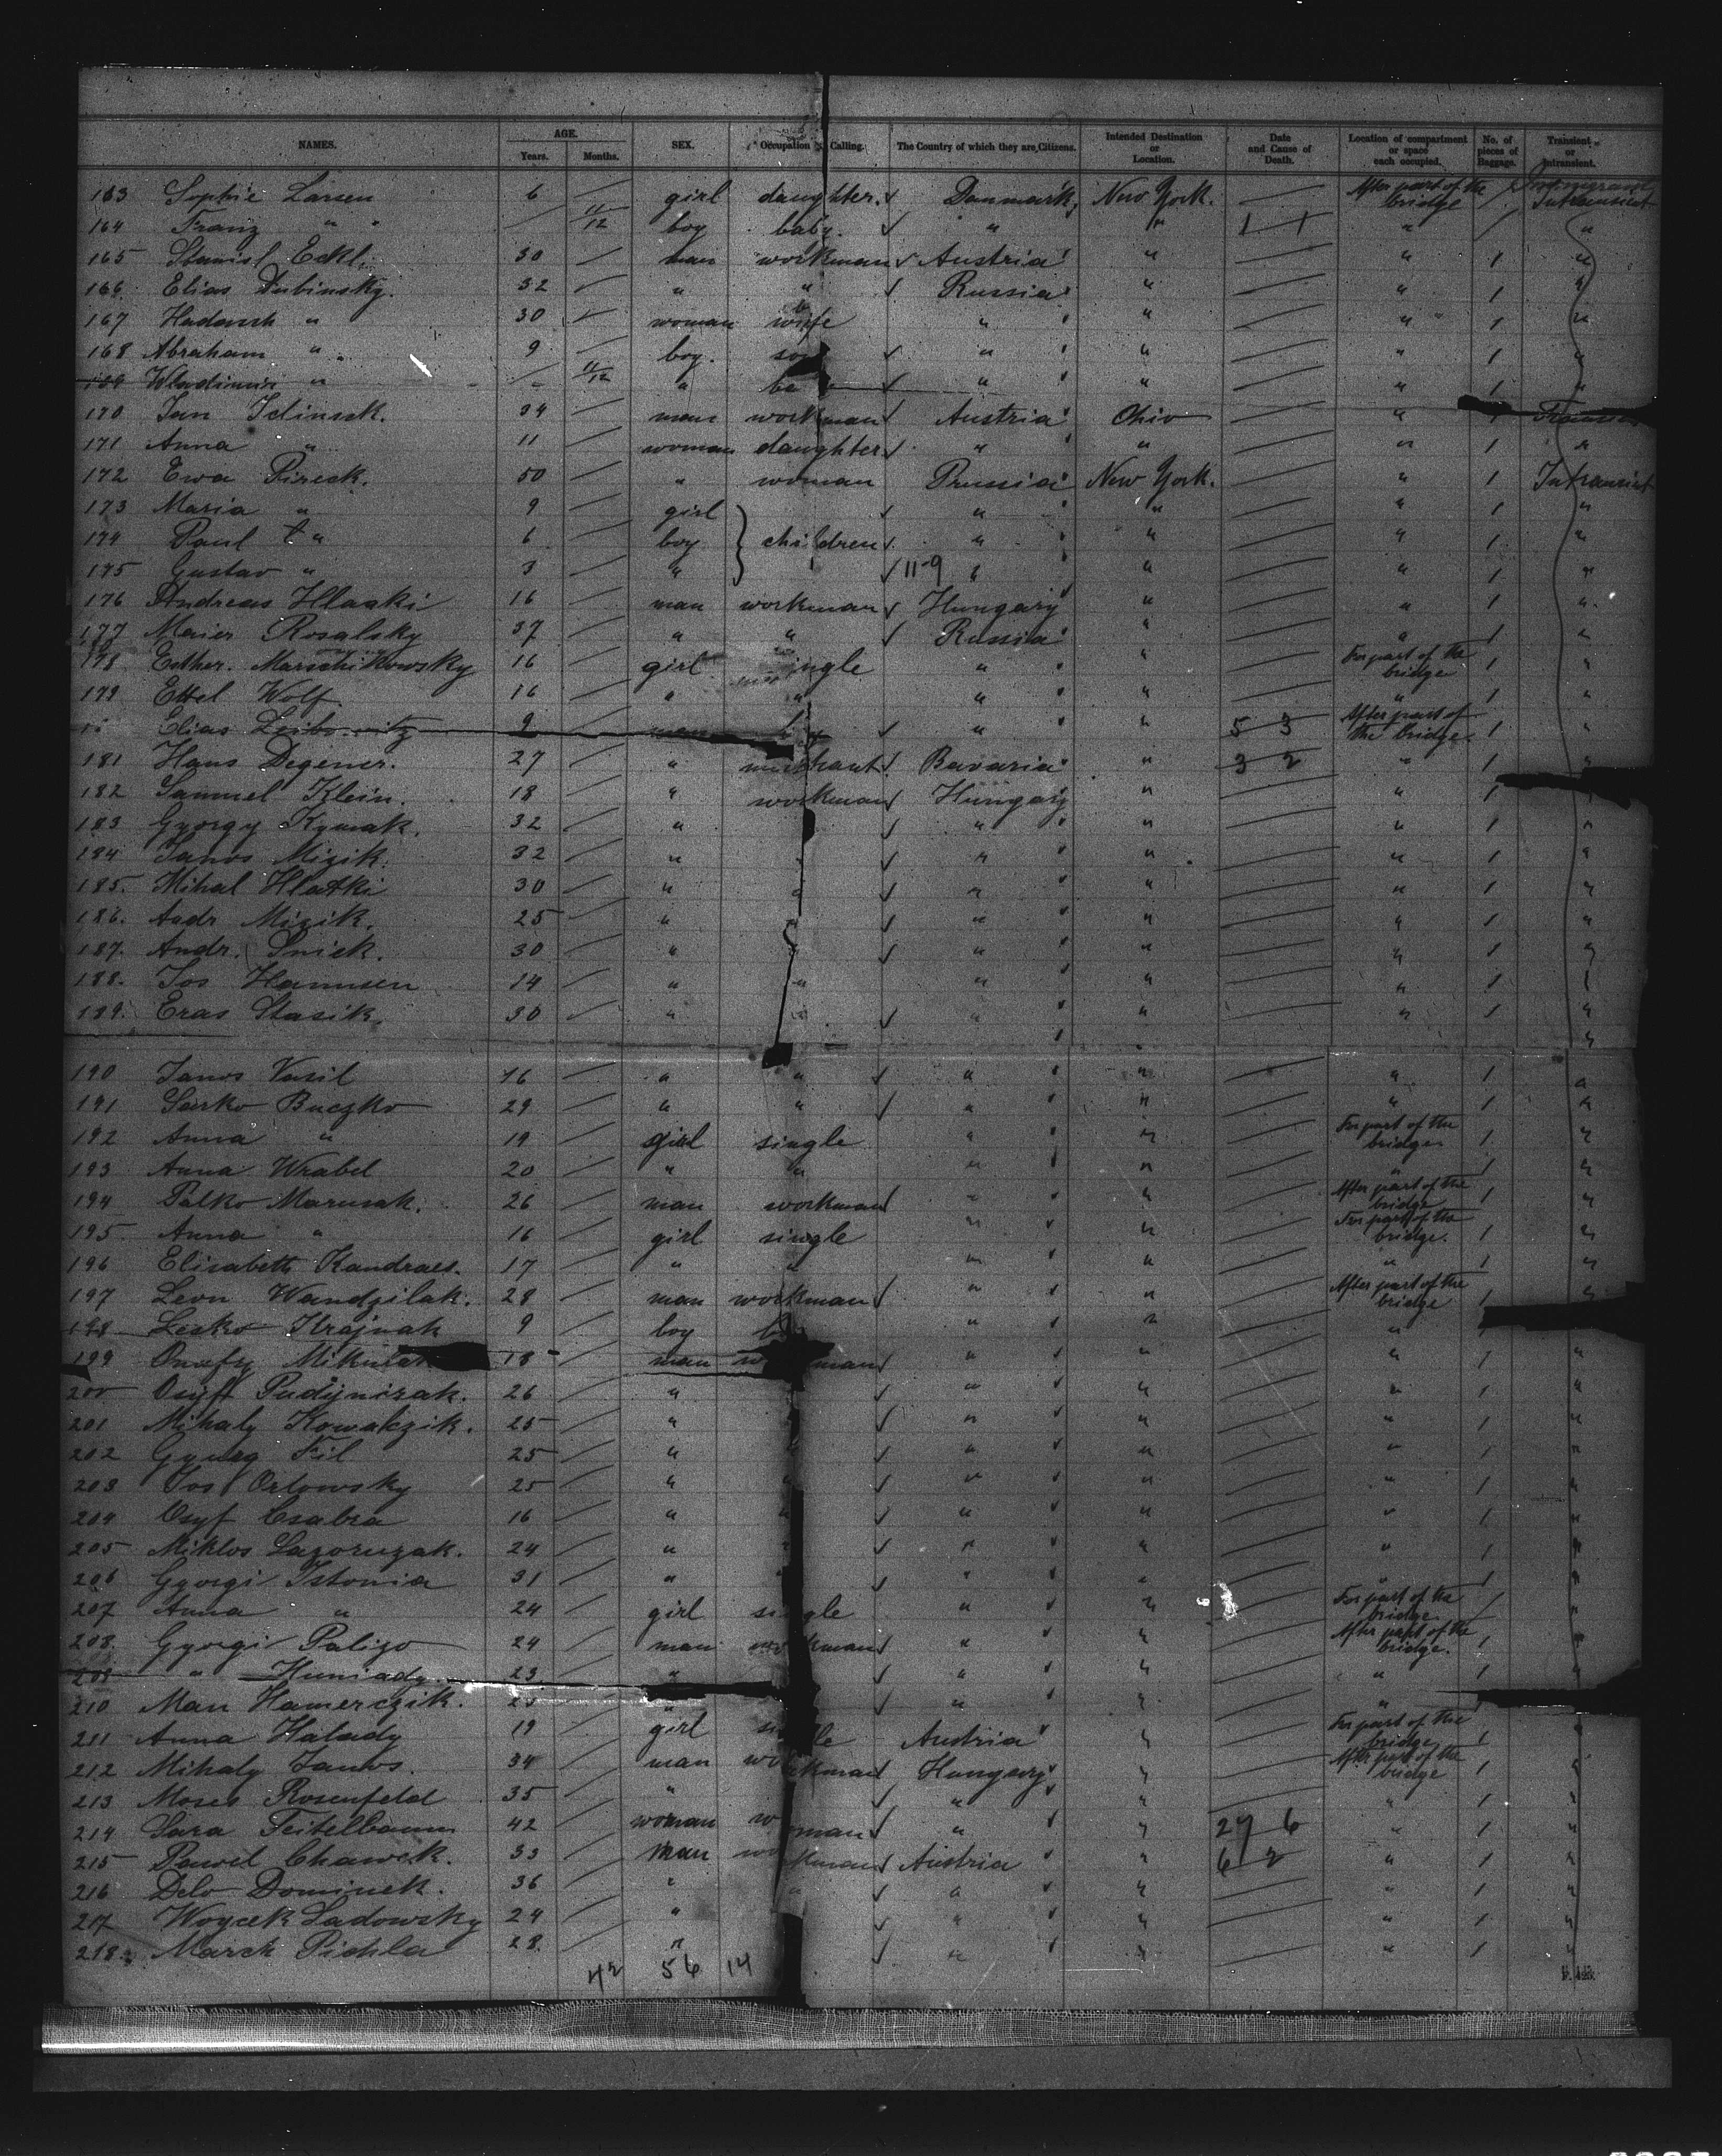 NAMES. AGE. Years. Months. SEX. Occupation Calling. The Country of which they are Citizens. Intended Destination or Location. Date and Cause of Death. Location of compartment or space each occupied. No. of pieces of Baggage. Transient or Intransient.
163 Sophie Larsen 6 girl daughter Danmark New York. After part of the bridge Intransient
164 Franz " 11/12 boy baby. " " 1 1 " "
165 Stanisl Eckl 30 man workman Austria " " 1 "
166 Elias Dubinsky. 32 " " Russia " " 1 "
167 " 30 woman wife " " " 1 "
168 Abraham " 9 boy. " " " 1 "
169 Wladimir " 11/12 " " " " 1 "
170 Jan 34 man workman Austria Ohio " 1
171 Anna " 11 woman daughter " " " 1 "
172 Ewa Pireck. 50 " woman Prussia New York. " 1 Intransient
173 Maria " 9 girl " " " 1 "
174 Paul " 6 boy children " " " 1 "
175 Gustav " 3 " 11-9 " " " 1 "
176 Andreas Hlaaki 16 man workman Hungary " " 1 "
177 Maier Rosalsky 37 " " Russia " " 1 "
178 Esther. Marschikowsky 16 girl single " " For part of the bridge 1 "
179 Ettel Wolf. 16 " " " " " 1 "
Elias Leibowitz 9 " " 5 3 After part of the bridge 1 "
181 Hans Degener. 27 " merchant Bavaria " 3 2 " 1 "
182 Samuel Klein. 18 " workman Hungary " " 1
183 Gyorgy Kymak. 32 " " " " 1 "
184 Janos Mizik. 32 " " " " 1 "
185. Mihal Hlatki 30 " " " " " 1 "
186. Andr Mizik. 25 " " " " " 1 "
187. Andr. 30 " " " " " 1 "
188. Jos Hamnsen 14 " " " " " 1
189. Eras Stasik. 30 " " " " " 1 "
190 Janos Vasil 16 " " " " " 1 "
191 Buczko 29 " " " " " 1 "
192 Anna " 19 girl single " " For part of the bridge 1 "
193 Anna Wrabel 20 " " " " " 1 "
194 Palko Marusak. 26 man workman " " After part of the bridge 1 "
195 Anna " 16 girl single " " For part of the bridge. 1 "
196 Elisabeth Kandraes. 17 " " " " " 1 "
197 Leon Wandzilak. 28 man workman " " After part of the bridge 1 "
198 Lesko Hrajnak 9 boy " " "
199 Onofry 18 man workman " " " 1 "
200 Osyft Pudijniczak. 26 " " " " 1 "
201 Mihaly Kowalczik. 25 " " " " 1 "
202 Fil 25 " " " " 1 "
203 Jos Orlowsky 25 " " " " " 1 "
204 Osyf Csabra 16 " " " " " 1 "
205 Miklos Lazoruzak. 24 " " " " 1 "
206 Gyorgi Istonia 31 " " " " 1 "
207 Anna " 24 girl single " " For part of the bridge 1 "
208. Gyorgi Paligo 24 man workman " " After part of the bridge. 1 "
209 " Huniady. 23 " " " " 1 "
210 Man Hamerczik. " " " "
211 Anna Halady 19 girl single Austria " For part of the bridge 1 "
212 Mihaly Janos. 34 man workman Hungary " After part of the bridge 1 "
213 Moses Rosenfeld 35 " " " " 1 "
214 Sara Teitelbaum 42 woman woman " " 27 6 " 1 "
215 Pawel Chawek. 33 man workman Austria " 6 2 " 1 "
216 Delo Dominek. 36 " " " " " 1 "
217 Woycek Sadowsky 24 " " " " 1 "
218. March Pichla 28. " " " " 1 "
42 56 14